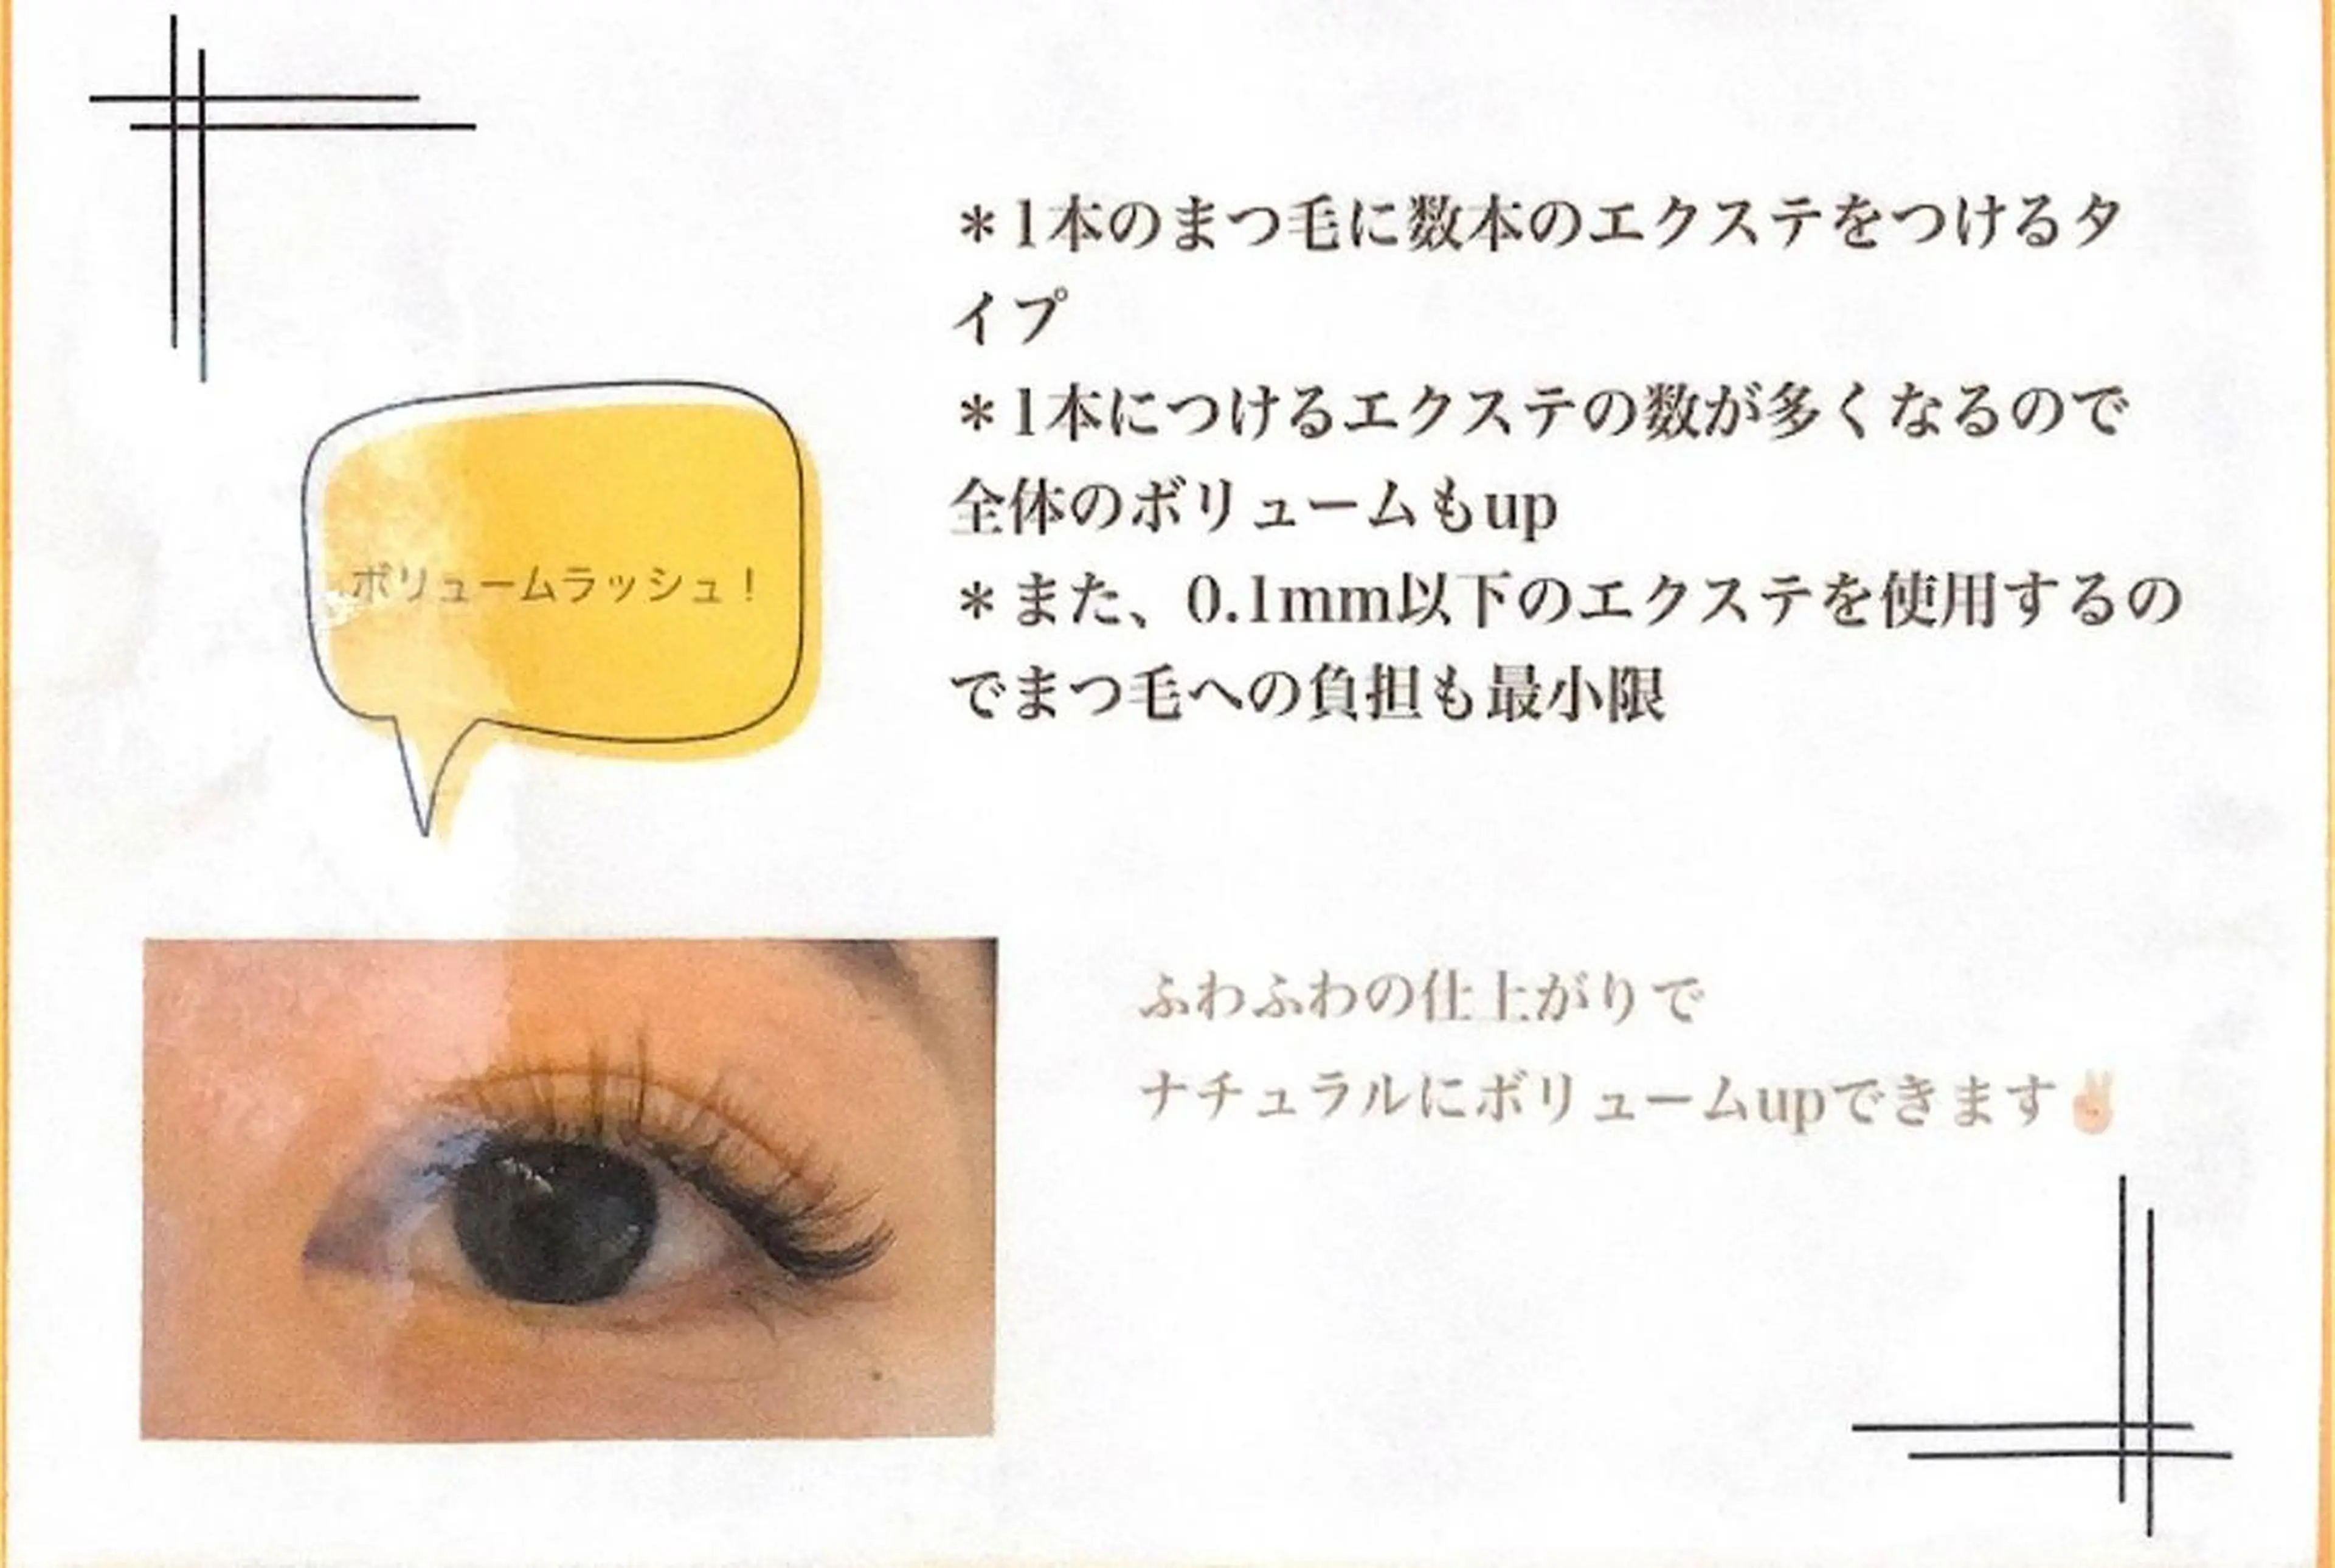 ボリュームラッシュ！
＊1本のまつ毛に数本のエクステをつけるタ
イプ
＊1本につけるエクステの数が多くなるので
全体のボリュームもup
＊また、0.1mm以下のエクステを使用するの
でまつ毛への負担も最小限
ふわふわの仕上がりで
ナチュラルにボリュームupできます✌🏻